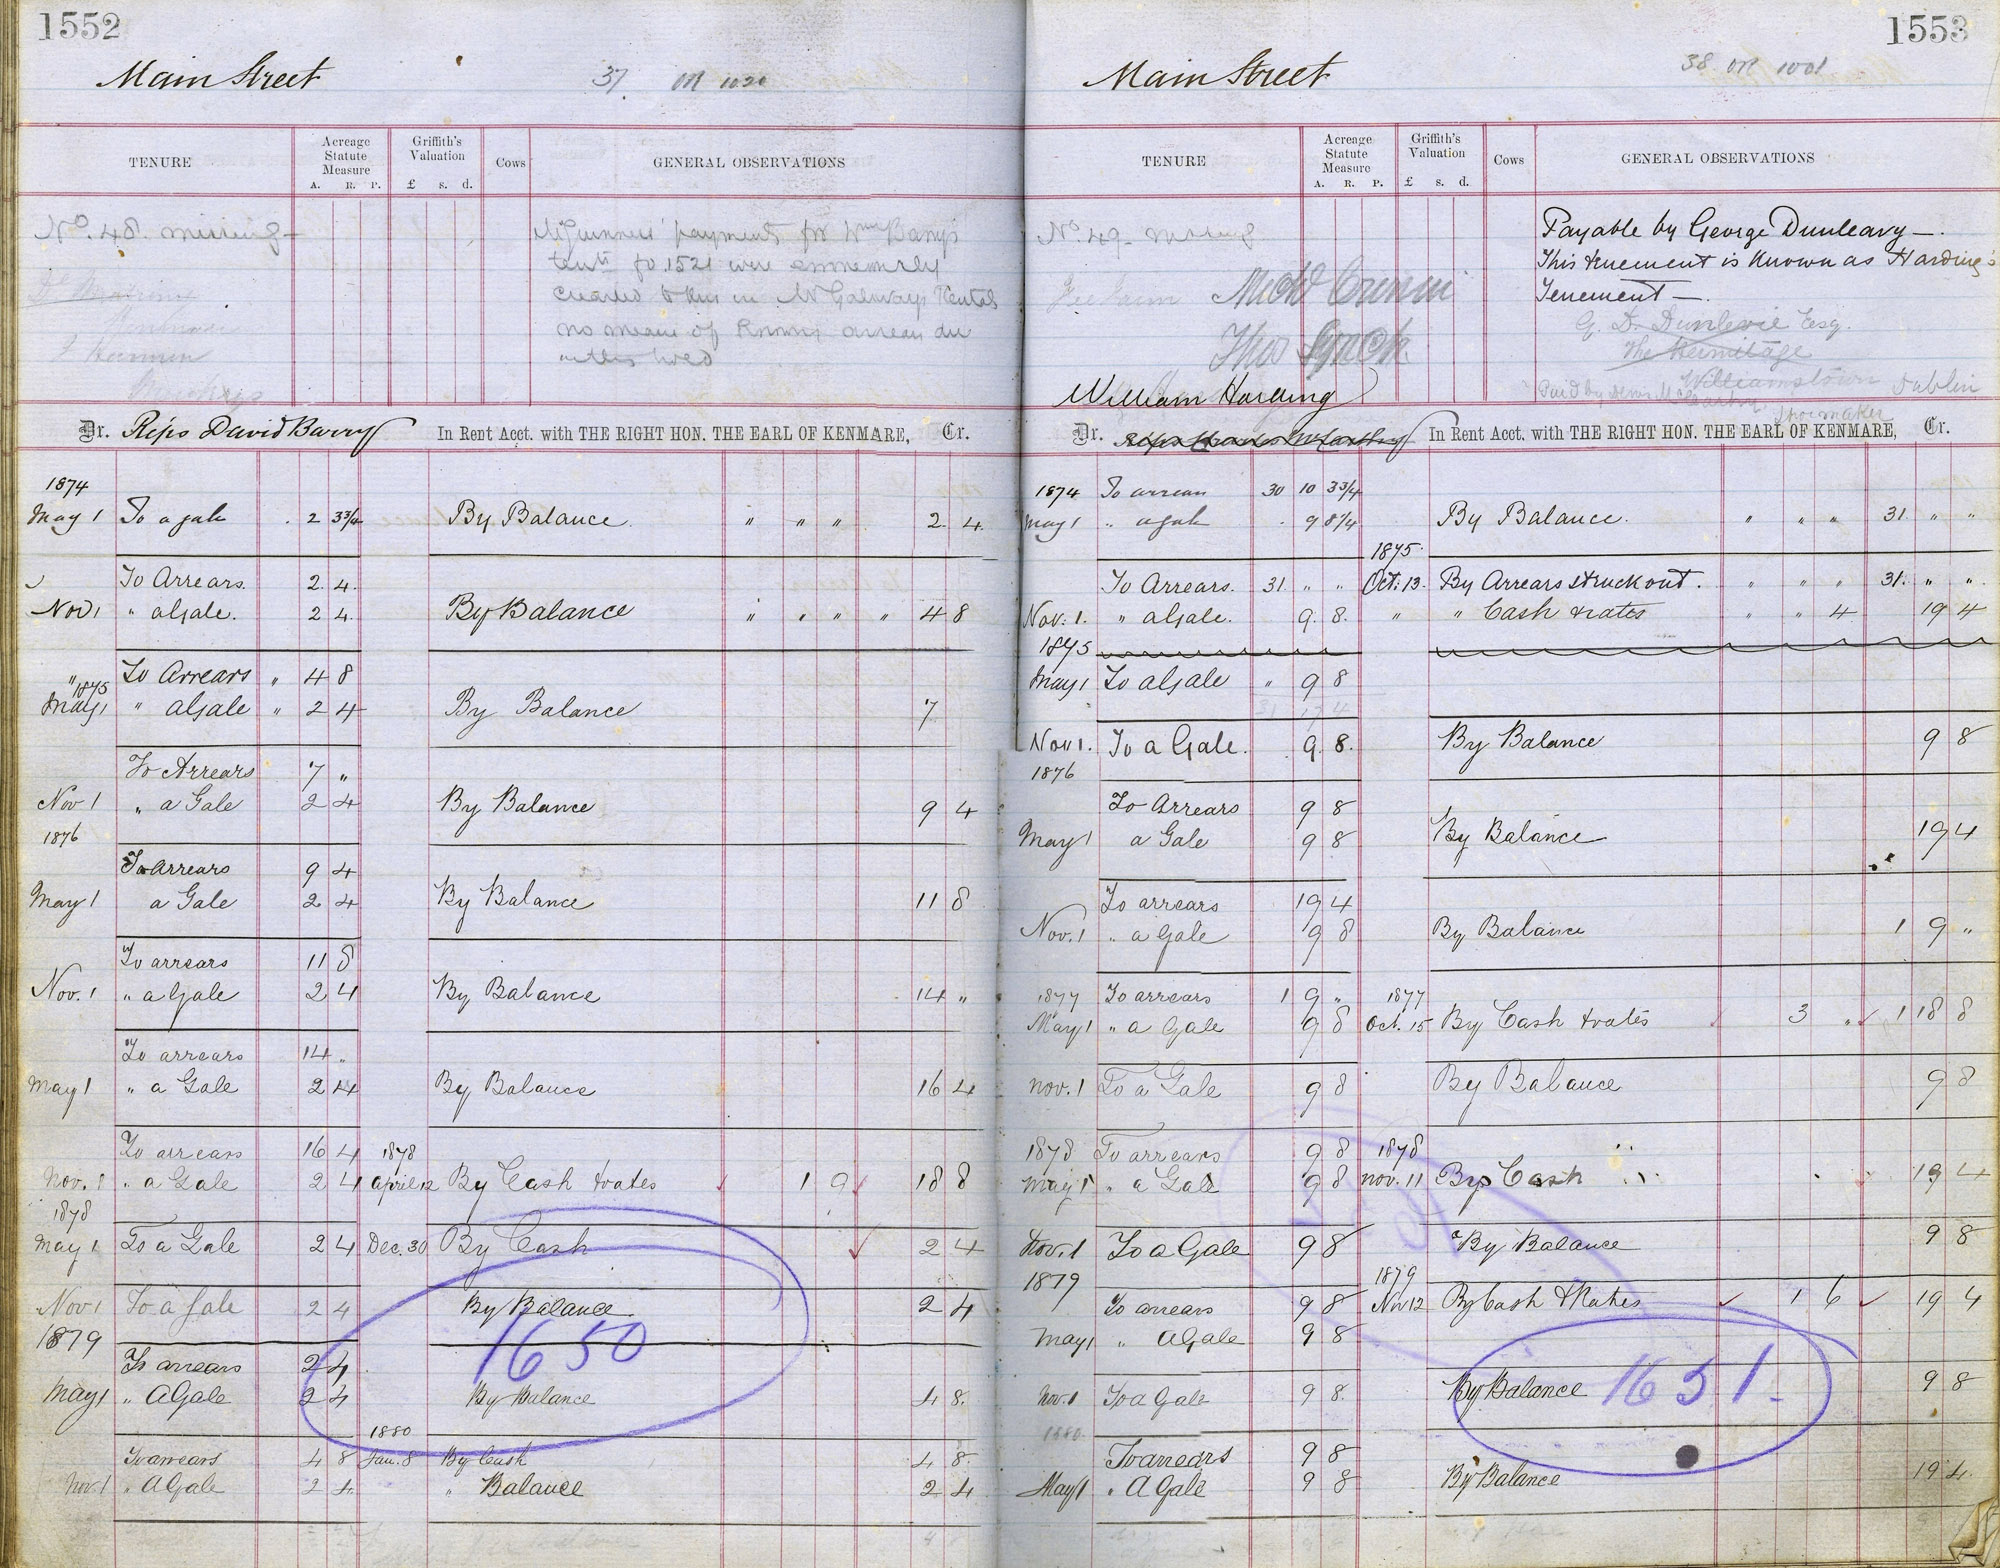 1552
Main Street
37 or 1020
TENURE
Acreage Statute Measure
A. R. P.
Griffith's Valuation
£ s. d.
Cows
GENERAL OBSERVATIONS
No. 48. missing
payments for Wm Barry's
no means of knowing arrears due
Dr. Reps David Barry In Rent Acct. with THE RIGHT HON. THE EARL OF KENMARE, Cr.
1874
May 1 To a gale . 2 3¾ By Balance " " " 2. 4.
To Arrears. 2 4.
Nov 1 " a Gale. 2 4. By Balance " " " " 4 8
" To Arrears " 4 8
1875
May 1 " a Gale " 2 4 By Balance 7
To Arrears 7 "
Nov 1 " a Gale 2 4 By Balance 9 4
1876
To Arrears 9 4
May 1 a Gale 2 4 By Balance 11 8
To arrears 11 8
Nov. 1 " a Gale 2 4 By Balance 14 "
To arrears 14 "
May 1 " a Gale 2 4 By Balance 16 4
To arrears 16 4 1878
Nov. 1 " a Gale 2 4 April 12 By Cash & rates 1 9 18 8
1878
May 1 To a Gale 2 4 Dec. 30 By Cash 2 4
Nov 1 To a Gale 2 4 By Balance 2 4
1879
1650
To arrears 2 4
May 1 " A Gale 2 4 By Balance 4 8.
1880
To arrears 4 8 Jan. 8 By Cash 4 8
Nov. 1 " A Gale 2 4. " Balance 2 4
1553
Main Street
38 or 1001
TENURE
Acreage Statute Measure
A. R. P.
Griffith's Valuation
£ s. d.
Cows
GENERAL OBSERVATIONS
No. 49
Thos Lynch
William Harding
Payable by George Dunleavy —.
This tenement is known as Harding's
Tenement —.
G. D. Dunlevie Esq.
The Hermitage
Williamstown Dublin
Shoemaker
Dr. In Rent Acct. with THE RIGHT HON. THE EARL OF KENMARE, Cr.
1874 To arrears 30 10 3¾
May 1 " a gale . 9 8¼ By Balance. " " " 31. " "
1875
To Arrears. 31 " " Oct. 13. By Arrears struck out. " " " 31. " "
Nov. 1. " a Gale. 9. 8. " " Cash & rates " " 4 19 4
1875
May 1 To a Gale " 9 8
Nov 1. To a Gale. 9. 8. By Balance 9 8
1876
To Arrears 9 8
May 1 a Gale 9 8 By Balance 19 4
To arrears 19 4
Nov. 1 " a Gale 9 8 By Balance 1 9 "
1877 To arrears 1 9 " 1877
May 1 " a Gale 9 8 Oct. 15 By Cash & rates 3 " 1 18 8
Nov. 1 To a Gale 9 8 By Balance 9 8
1878 To arrears 9 8 1878
May 1 " a Gale 9 8 Nov. 11 By Cash 19 4
Nov. 1 To a Gale 9 8 By Balance 9 8
1879 1879
To arrears 9 8 Nov 12 By Cash & Rates 1 6 19 4
May 1 " A Gale 9 8
Nov. 1 To a Gale 9 8. By Balance 9 8
1651.
1880.
To arrears 9 8
May 1 " A Gale 9 8 By Balance 19 4.